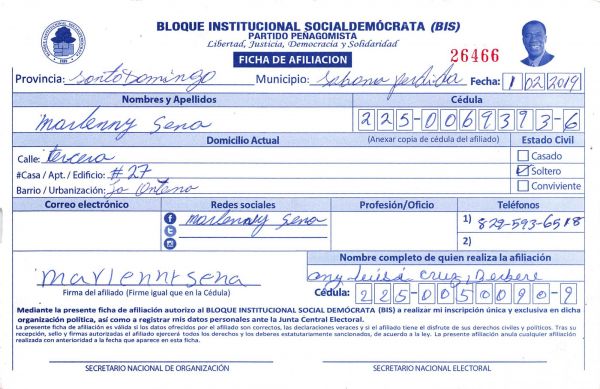 BLOQUE INSTITUCIONAL SOCIALDEMÓCRATA (BIS)
PARTIDO PEÑAGOMISTA
Libertad, Justicia, Democracia y Solidaridad
FICHA DE AFILIACION
26466
Provincia: Santo Domingo Municipio: Sabana perdida Fecha: 1 02 2019
Nombres y Apellidos Cédula
Marlenny Sena 225-0069393-6
Domicilio Actual (Anexar copia de cédula del afiliado) Estado Civil
Calle: tercera Casado
#Casa / Apt. / Edificio: #27 Soltero
Barrio / Urbanización: Conviviente
Correo electrónico Redes sociales Profesión/Oficio Teléfonos
Marlenny Sena 1) 829-593-6518
2)
Nombre completo de quien realiza la afiliación
Marlenny sena Cruz
Firma del afiliado (Firme igual que en la Cédula) Cédula: 225-0050090-9
Mediante la presente ficha de afiliación autorizo al BLOQUE INSTITUCIONAL SOCIAL DEMÓCRATA (BIS) a realizar mi inscripción única y exclusiva en dicha
organización política, así como a registrar mis datos personales ante la Junta Central Electoral.
La presente ficha de afiliación es válida si los datos ofrecidos por el afiliado son correctos, las declaraciones veraces y si el afiliado tiene el disfrute de sus derechos civiles y políticos. Tras su
recepción, sello y firmas autorizadas el afiliado ejercerá todos los derechos y los deberes estatutariamente sancionados, de acuerdo a la ley. La presente afiliación anula cualquier afiliación
realizada con anterioridad a la fecha que aparece en esta ficha.
SECRETARIO NACIONAL DE ORGANIZACIÓN SECRETARIO NACIONAL ELECTORAL